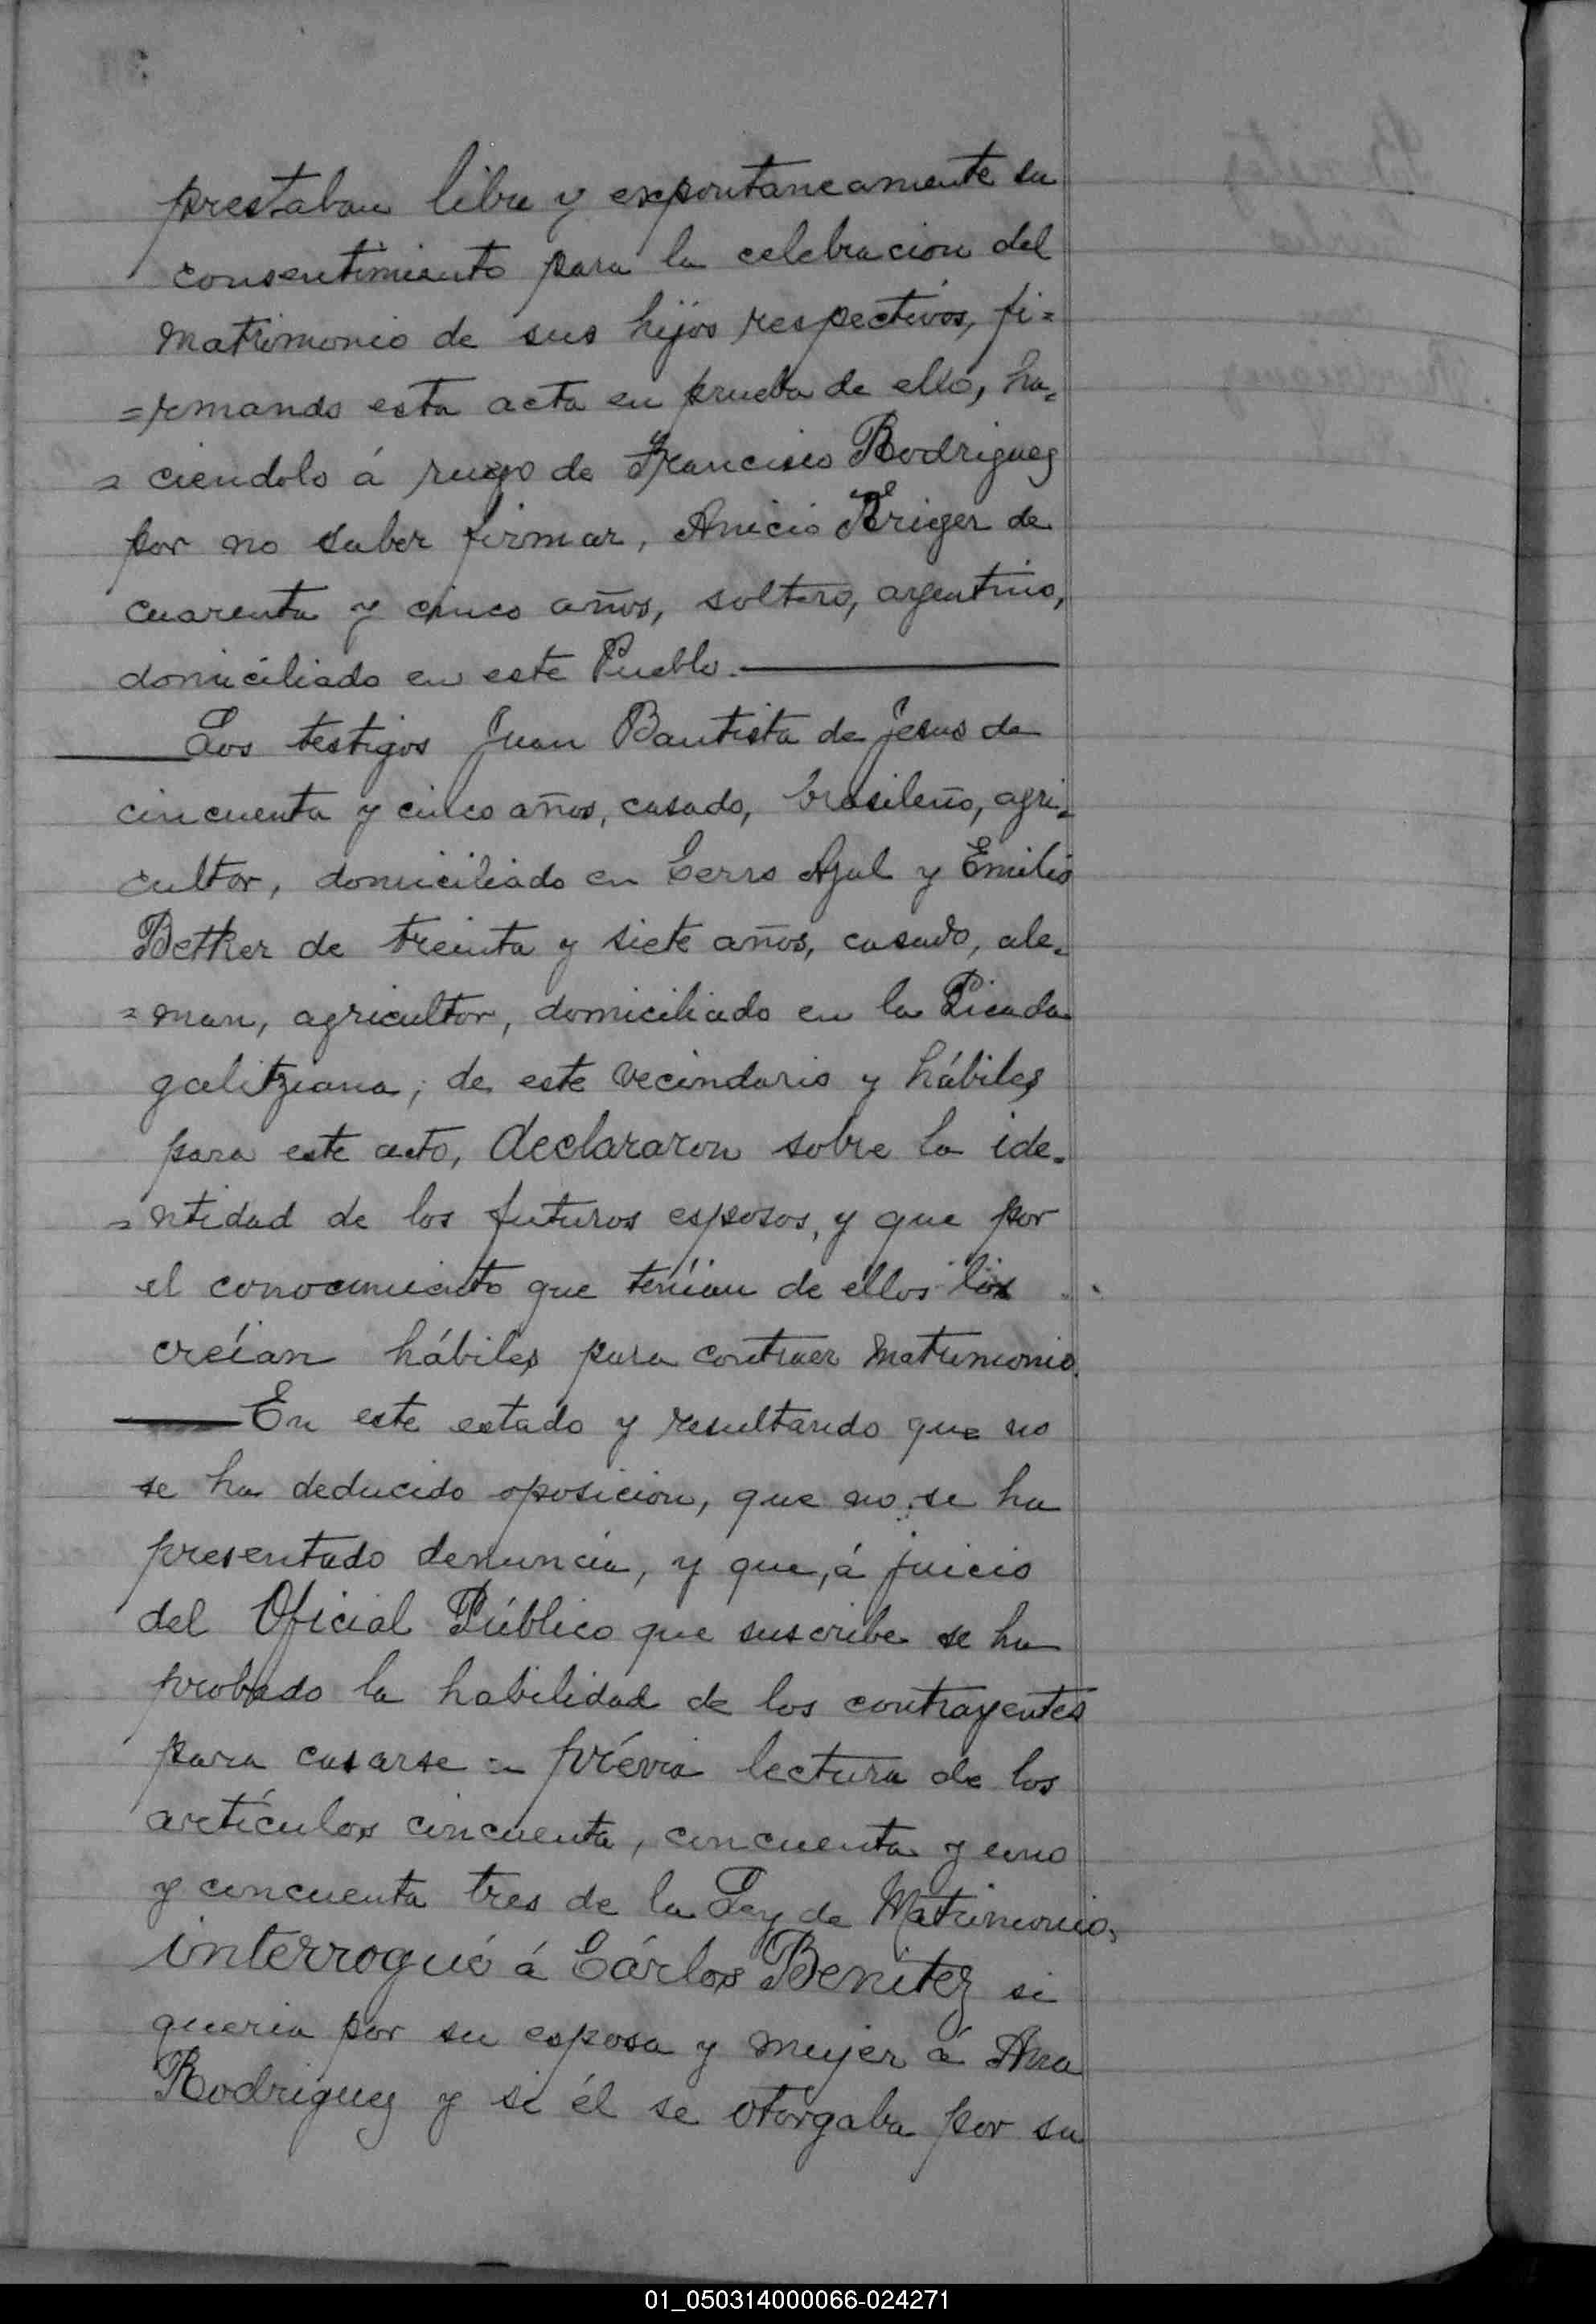 prestaban libre y expontaneamente su
consentimiento para la celebracion del
matrimonio de sus hijos respectivos, fi=
=rmando esta acta en prueba de ello, ha=
=ciendolo á ruego de Francisco Rodriguez
por no saber firmar, Anicio Kriger de
cuarenta y cinco años, soltero, argentino,
domiciliado en este Pueblo.
Los testigos Juan Bautista de Jesus de
cincuenta y cinco años, casado, brasileño, agri=
cultor, domiciliado en Cerro Azul y Emilio
Betker de treinta y siete años, casado, ale=
=man, agricultor, domiciliado en la Picada
galitziana, de este vecindario y hábiles
para este acto, declararon sobre la ide=
=ntidad de los futuros esposos, y que por
el conocimiento que tenían de ellos los
creían hábiles para contraer matrimonio.
En este estado y resultando que no
se ha deducido oposicion, que no se ha
presentado denuncia, y que, á juicio
del Oficial Público que suscribe se ha
probado la habilidad de los contrayentes
para casarse = prévia lectura de los
artículos cincuenta, cincuenta y uno
y cincuenta tres de la Ley de Matrimonio,
interrogué á Cárlos Benitez si
queria por su esposa y mujer á Ana
Rodriguez y si él se otorgaba por su
01_050314000066-024271